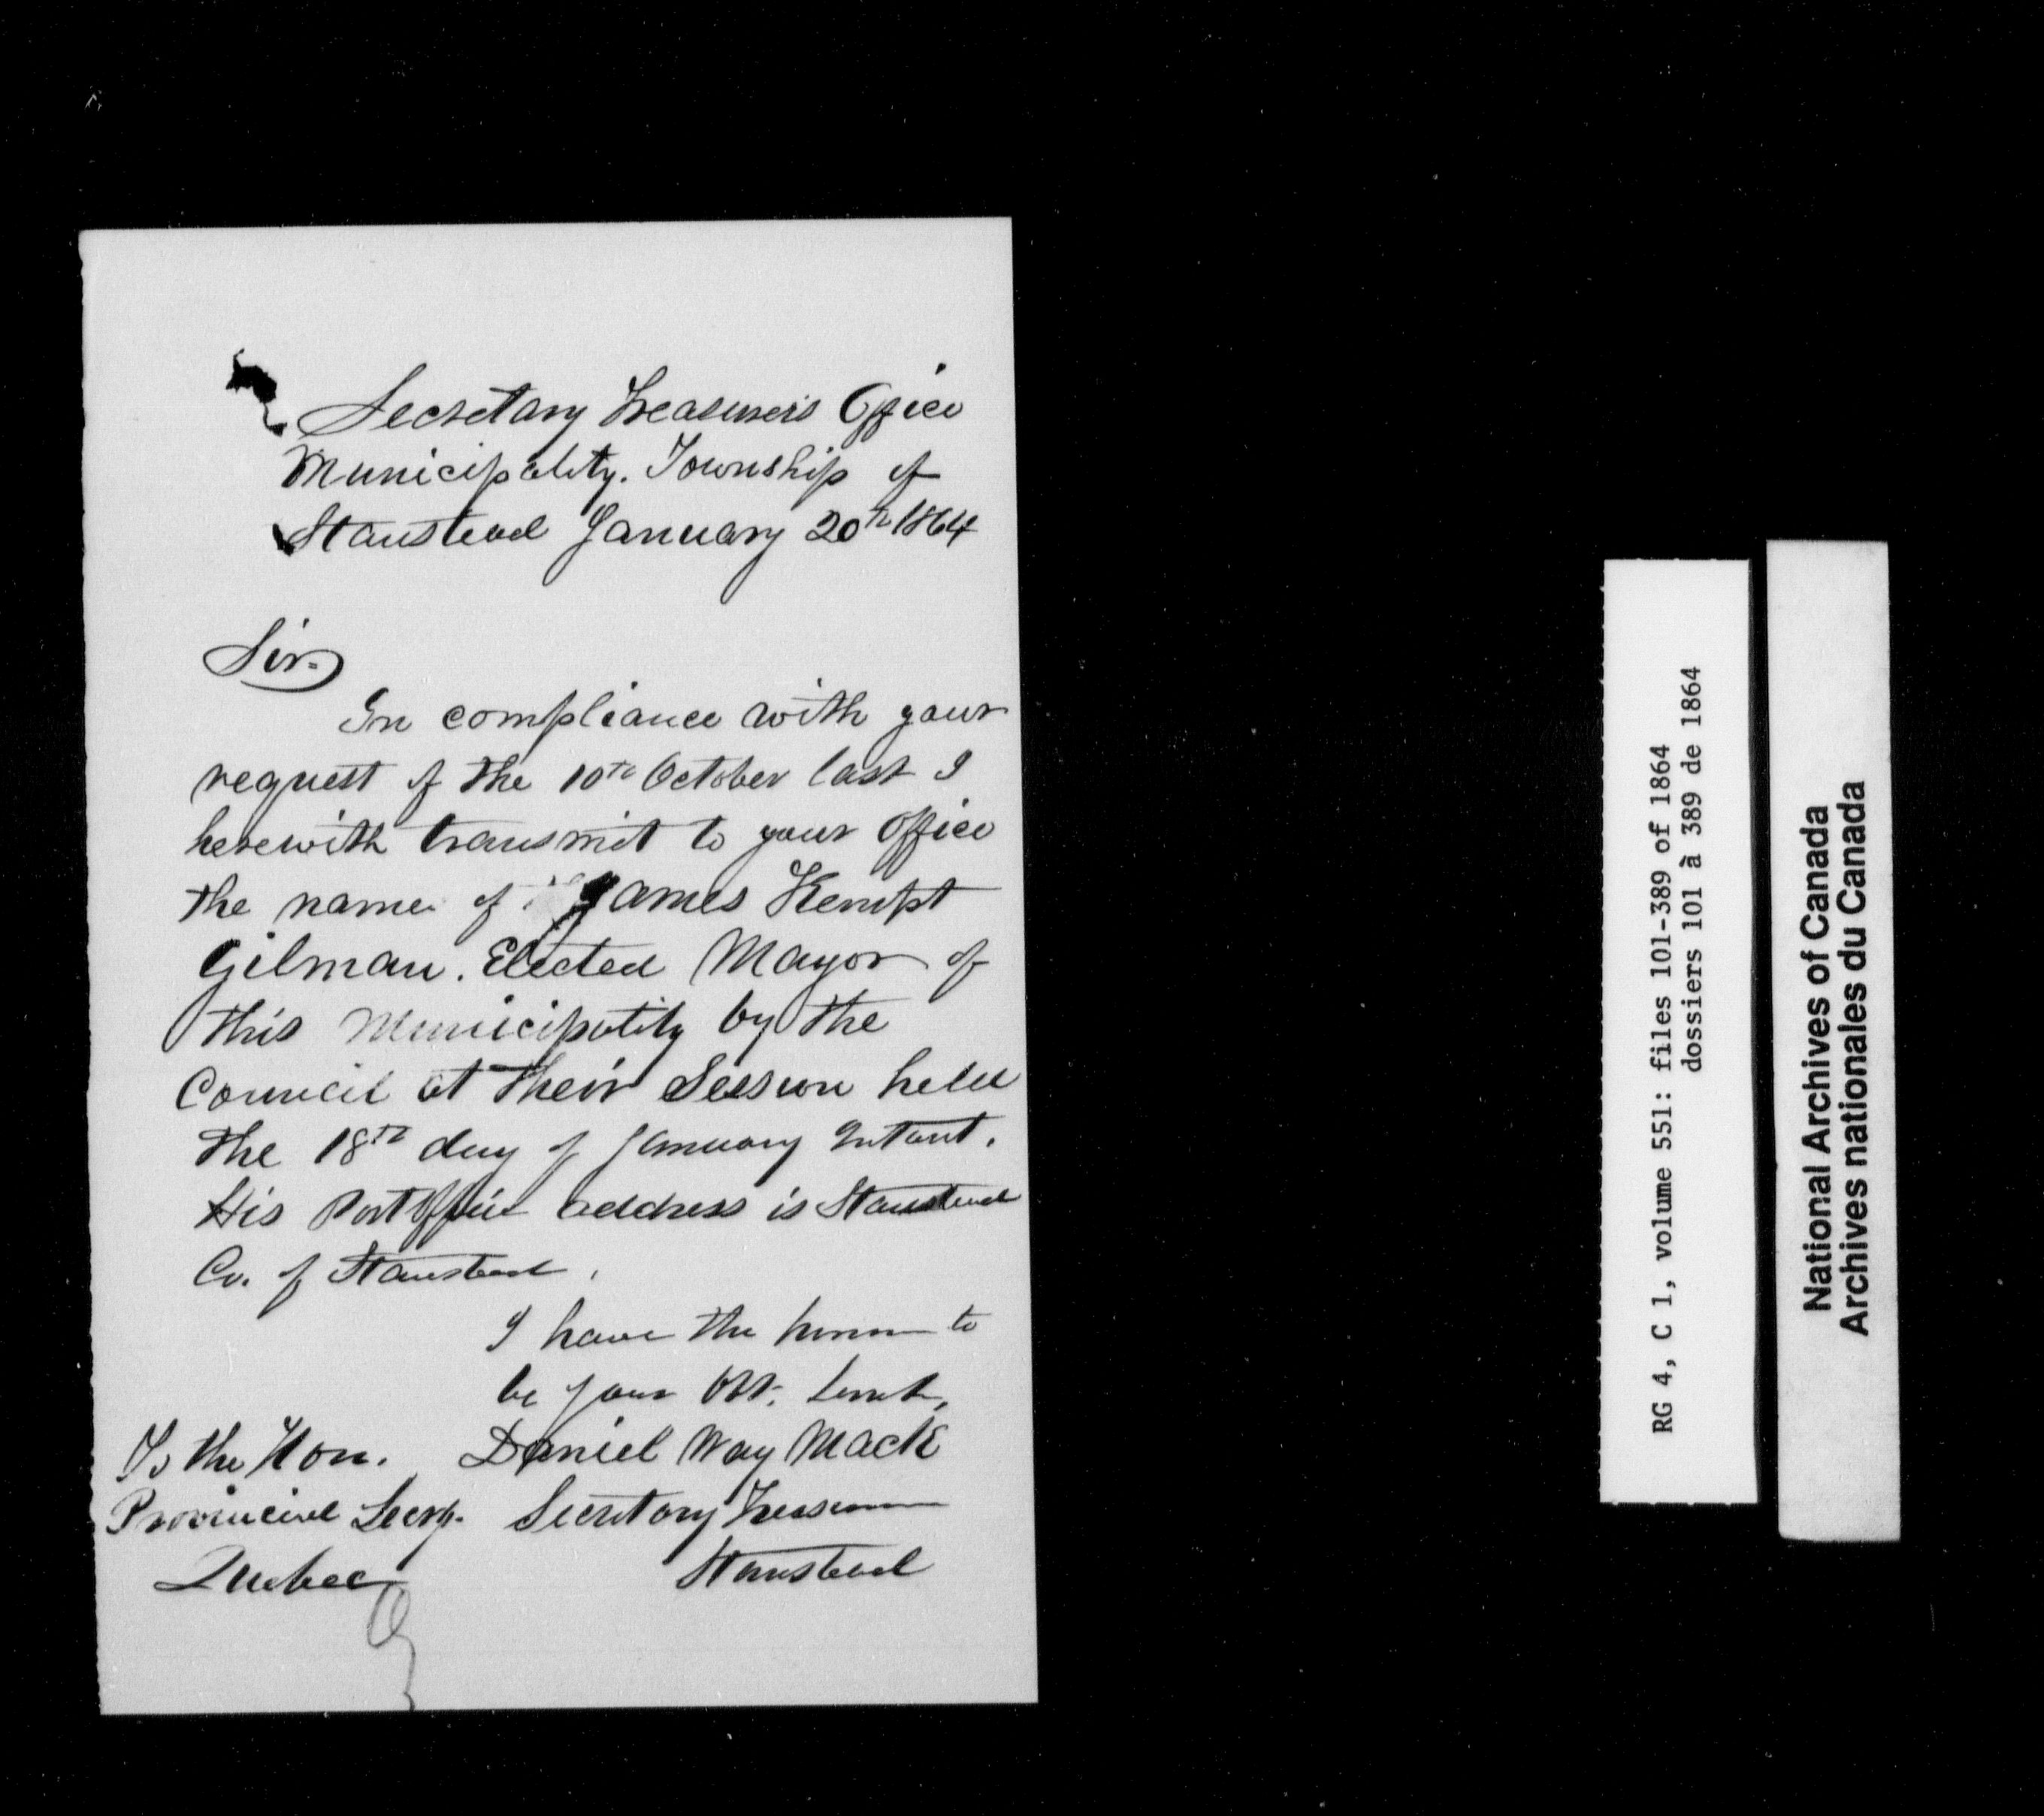 Secretary Treasurer's Office
Municipality. Township of
Stanstead January 20th 1864
Sir.
In compliance with your
request of the 10th October last I
herewith transmit to your Office
the name of James Kempt
Gilman. Elected Mayor of
this Municipality by the
Council at their Session held
the 18th day of January Intant.
His Post Office address is Stanstead
Co. of Stanstead.
I have the honor to
be your Obt. Servt,
Daniel Way Mack
Secretary Treasurer
Stanstead
To the Hon.
Provincial Secry.
Quebec
RG 4, C 1, volume 551: files 101-389 of 1864
dossiers 101 à 389 de 1864
National Archives of Canada
Archives nationales du Canada